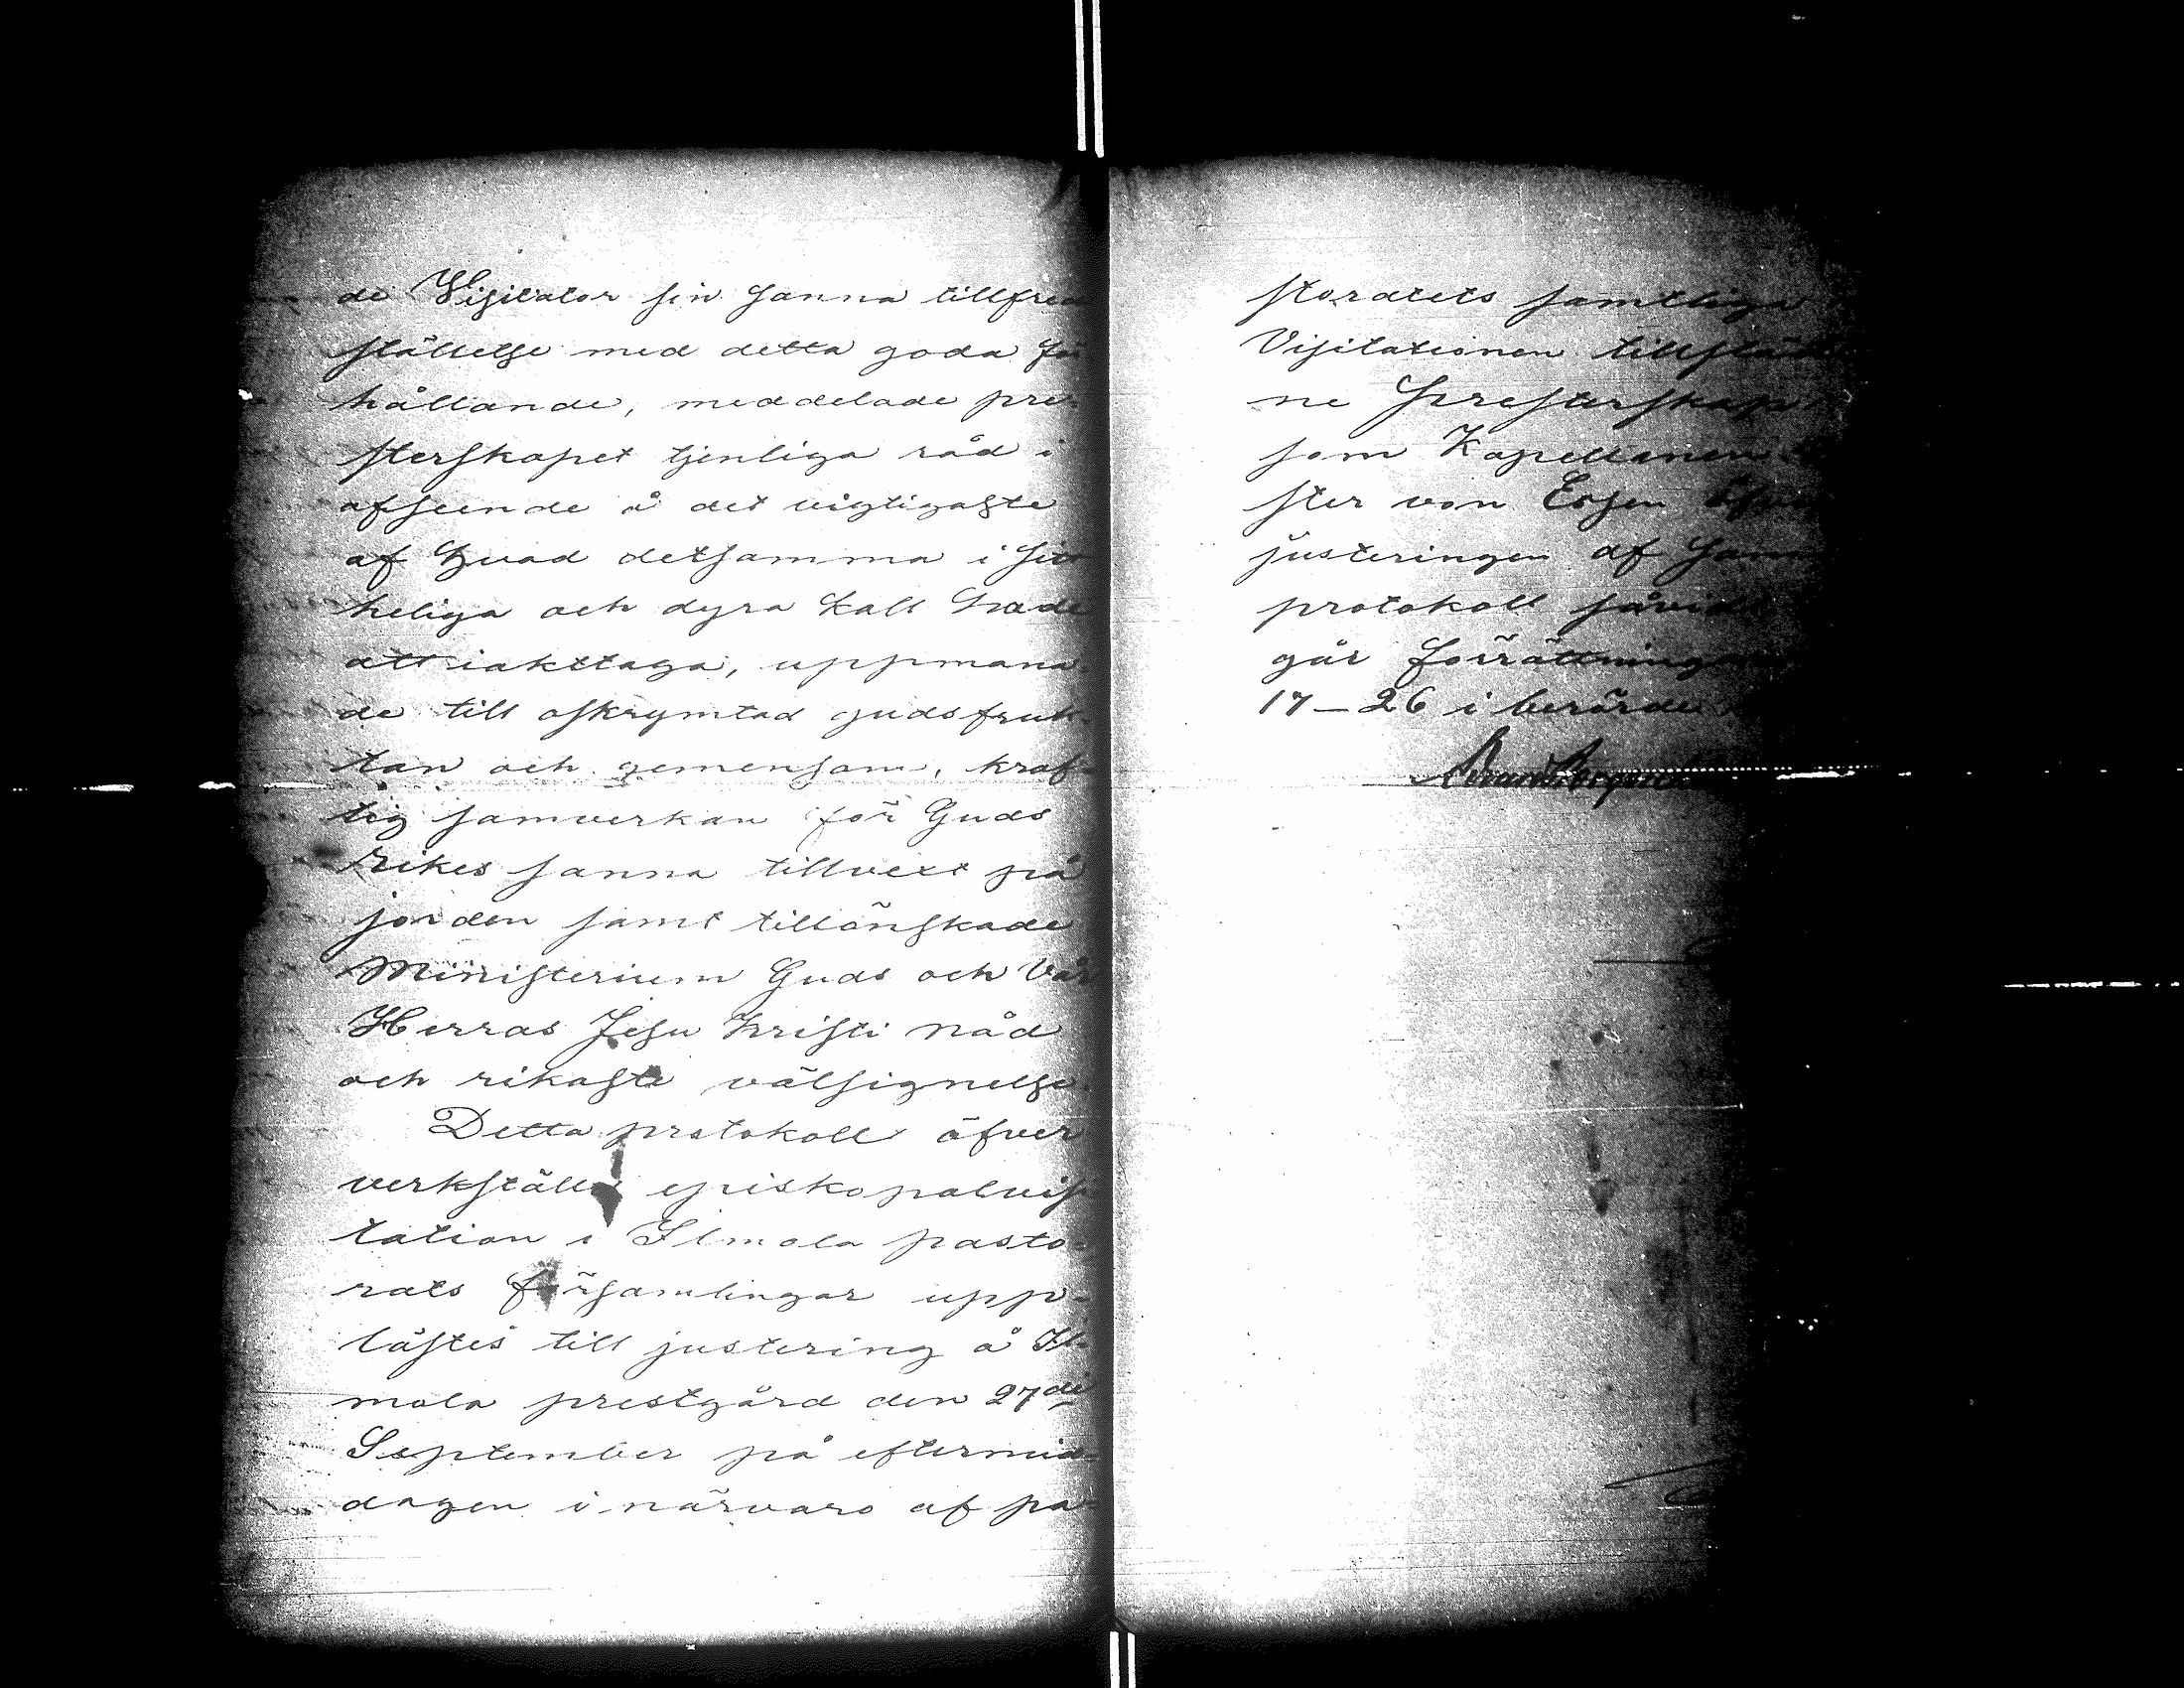 de Visitator sin sanna tillfred
ställelse med detta goda för
hållande, meddelade pre-
sterskapet tjenliga råd i
afseende å det vigtigaste
af hvad detsamma i sitt
heliga och dyra kall hade
att iakttaga, uppmana-
de till oskrymtad gudsfruk-
tan och gemensam, kraf-
tig samverkan för Guds
rikes sanna tillvext på
jorden samt tillönskade
Ministerium Guds och Vår
Herras Jesu Kristi nåd
och rikaste välsignelse.
Detta protokoll öfver
verkställd episkopalvisi
tation i Ilmola pasto-
rats församlingar upp-
lästes till justering å Il-
mola prestgård den 27de
September på eftermid-
dagen i närvaro af pa-
storatets samtliga
Visitationen tillstäd
ne Presterskap
som Kapellanen
ster von Essen
justeringen af
protokoll såvid
går förrättning
17–26 i berörde